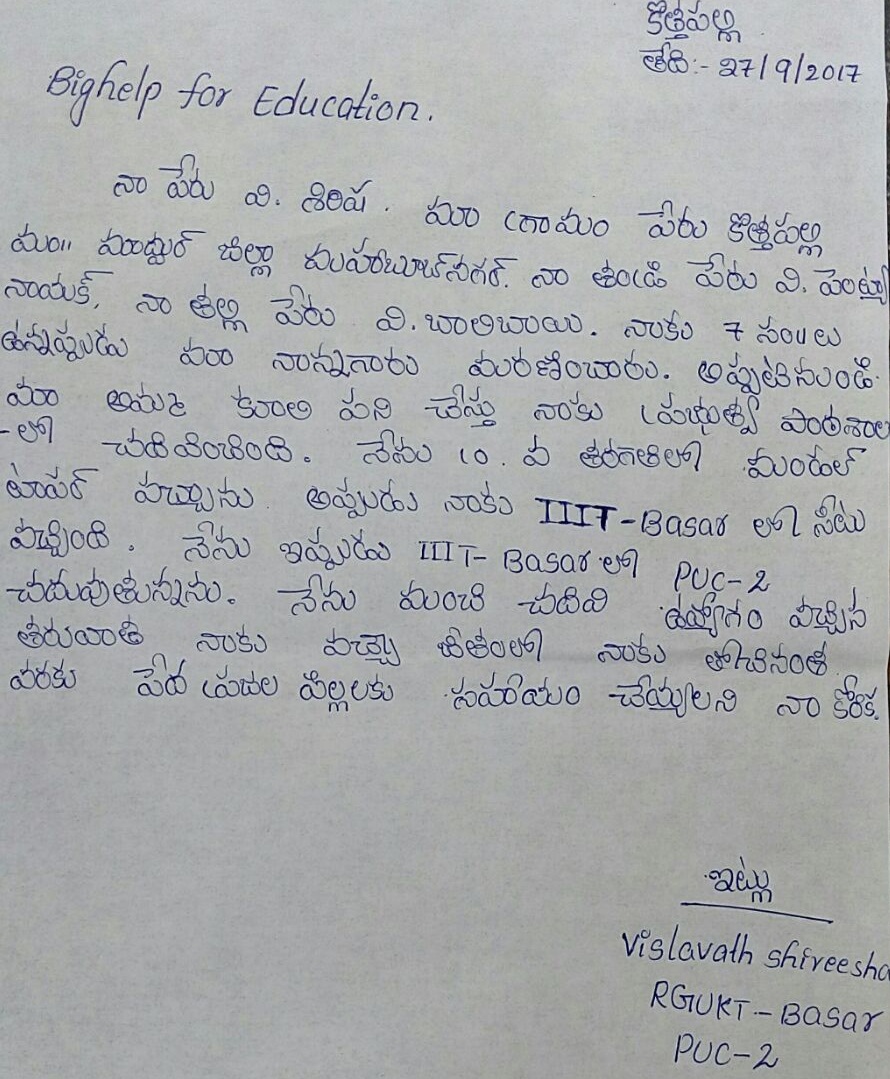 కొత్తపల్లి
తేది:- 27/9/2017
Bighelp for Education.
నా పేరు వి. శిరిష. మా గ్రామం పేరు కొత్తపల్లి
మం|| మాద్దుర్ జిల్లా మహబూబ్‌నగర్. నా తండ్రి పేరు వి. పెంట్యా
నాయక్, నా తల్లి పేరు వి. బాలిబాయి. నాకు 7 సం||లు
ఉన్నప్పుడు మా నాన్నగారు మరణించారు. అప్పటినుండి
మా అమ్మ కూలి పని చేస్తు నాకు ప్రభుత్వ పాఠశాల
-లో చదివించింది. నేను 10. వ తరగతిలో మండల్
టాపర్ వచ్చాను. అప్పుడు నాకు IIIT-Basar లో సీటు
వచ్చింది. నేను ఇప్పుడు IIIT-Basar లో PUC-2
చదువుతున్నాను. నేను మంచి చదివి ఉద్యోగం వచ్చిన
తరువాత నాకు వచ్చే జీతంలో నాకు తోచినంత
వరకు పేద ప్రజల పిల్లలకు సహాయం చేయ్యాలని నా కోరిక.
ఇట్లు
Vislavath Shireesha
RGUKT-Basar
PUC-2